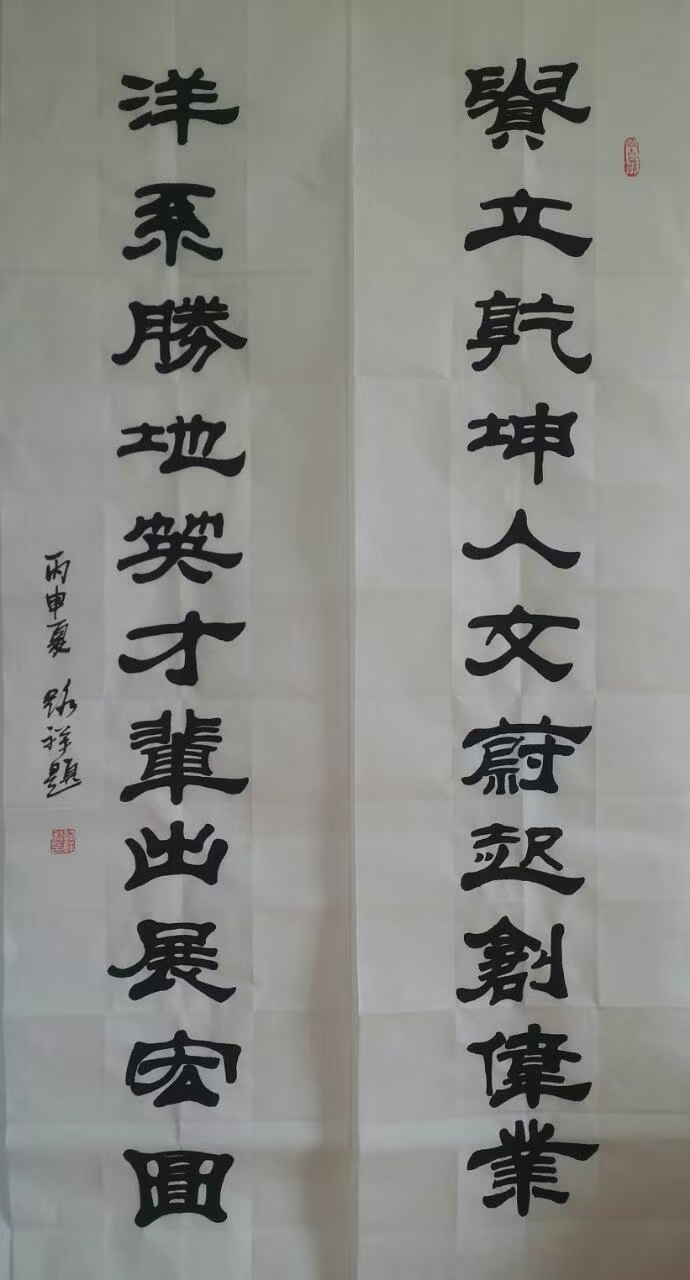 賢立乾坤人文蔚起創偉業
洋系勝地英才輩出展宏圖
丙申夏 路祥題